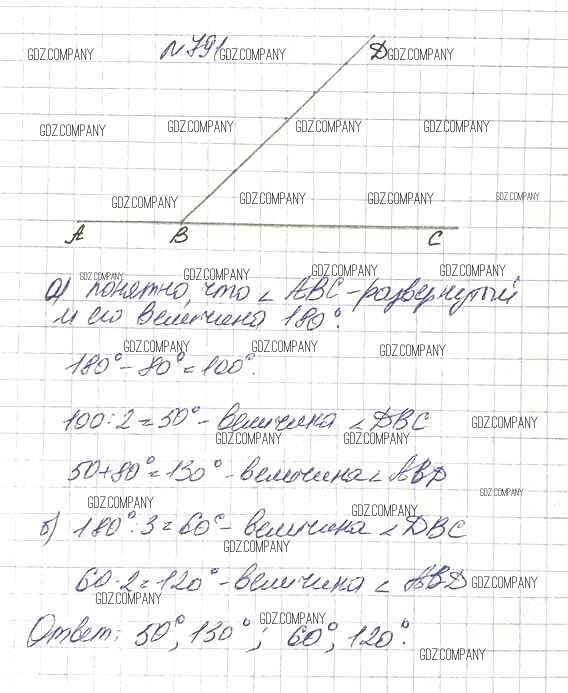 №791
D
A B C
а) понятно, что ∠ ABC - развернутый
и его величина 180°.
180° - 80° = 100°.
100 : 2 = 50° - величина ∠ DBC
50 + 80° = 130° - величина ∠ ABD
б) 180° : 3 = 60° - величина ∠ DBC
60 · 2 = 120° - величина ∠ ABD
Ответ: 50°, 130°; 60°, 120°.
GDZ.COMPANY GDZ.COMPANY GDZ.COMPANY
GDZ.COMPANY GDZ.COMPANY GDZ.COMPANY GDZ.COMPANY
GDZ.COMPANY GDZ.COMPANY GDZ.COMPANY GDZ.COMPANY
GDZ.COMPANY GDZ.COMPANY GDZ.COMPANY GDZ.COMPANY
GDZ.COMPANY GDZ.COMPANY GDZ.COMPANY
GDZ.COMPANY GDZ.COMPANY GDZ.COMPANY
GDZ.COMPANY GDZ.COMPANY GDZ.COMPANY
GDZ.COMPANY GDZ.COMPANY GDZ.COMPANY
GDZ.COMPANY GDZ.COMPANY